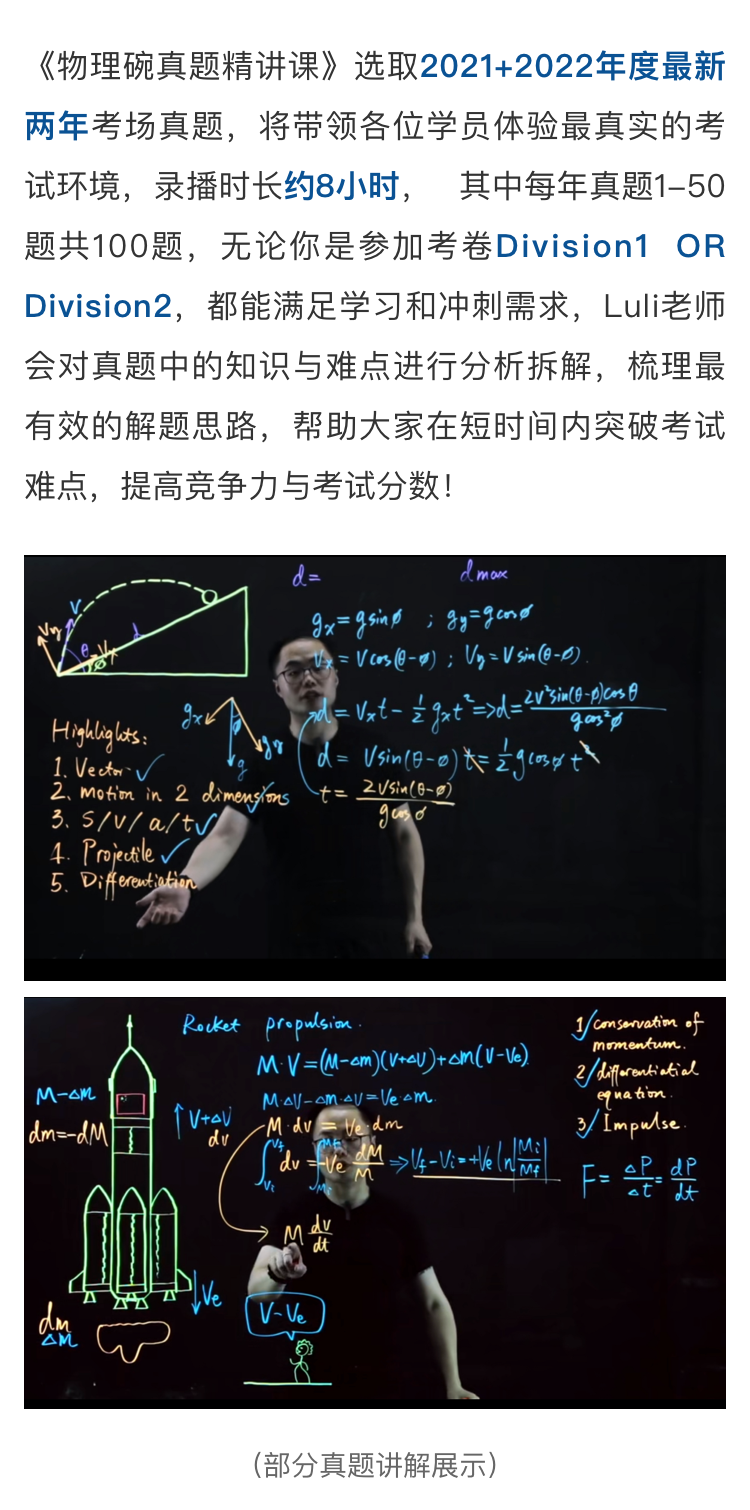 《物理碗真题精讲课》选取2021+2022年度最新
两年考场真题，将带领各位学员体验最真实的考
试环境，录播时长约8小时， 其中每年真题1–50
题共100题，无论你是参加考卷Division1 OR
Division2，都能满足学习和冲刺需求，Luli老师
会对真题中的知识与难点进行分析拆解，梳理最
有效的解题思路，帮助大家在短时间内突破考试
难点，提高竞争力与考试分数！
d=
d max
V
Vy
θ
Vx
d
ø
gx = g sinø ; gy = g cosø
Vx = V cos(θ-ø) ; Vy = V sin(θ-ø).
d = Vxt - 1/2 gxt² => d = 2V²sin(θ-ø)cosθ / g cos²ø
d = Vsin(θ-ø) t = 1/2 g cosø t
t = 2Vsin(θ-ø) / g cosø
gx
ø
g
Highlights:
1. Vector ✓
2. motion in 2 dimensions
3. S/V/a/t ✓
4. Projectile ✓
5. Differentiation
Rocket propulsion.
M·V=(M-Δm)(V+ΔV)+Δm(V-Ve)
M·ΔV-Δm·ΔV=Ve·Δm.
M·dv = Ve·dm
dv = -Ve dM/M => Vf-Vi=+Ve ln|Mi/Mf|
M dv/dt
M-Δm
dm=-dM
↑V+ΔV
dv
↓Ve
dm
ΔM
V-Ve
1/ conservation of
momentum.
2/ differentiatial
equation.
3/ Impulse.
F = ΔP/Δt = dP/dt
（部分真题讲解展示）